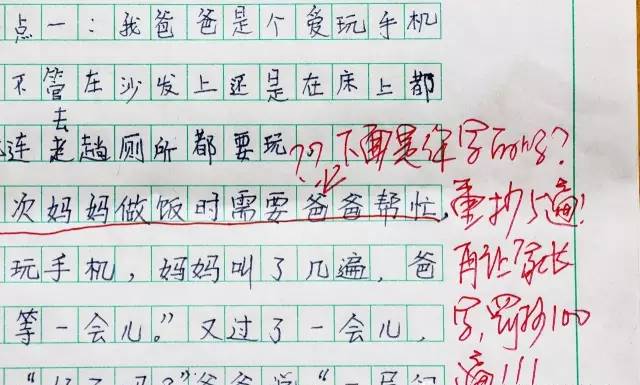 点一：我爸爸是个爱玩手机
不管在沙发上还是在床上都
连去趟厕所都要玩
次妈妈做饭时需要爸爸帮忙，
玩手机，妈妈叫了几遍，爸
等一会儿。”又过了一会儿，
??下面是年字的吗?
重抄5遍!
再让家长
字,罚抄100
遍!!!